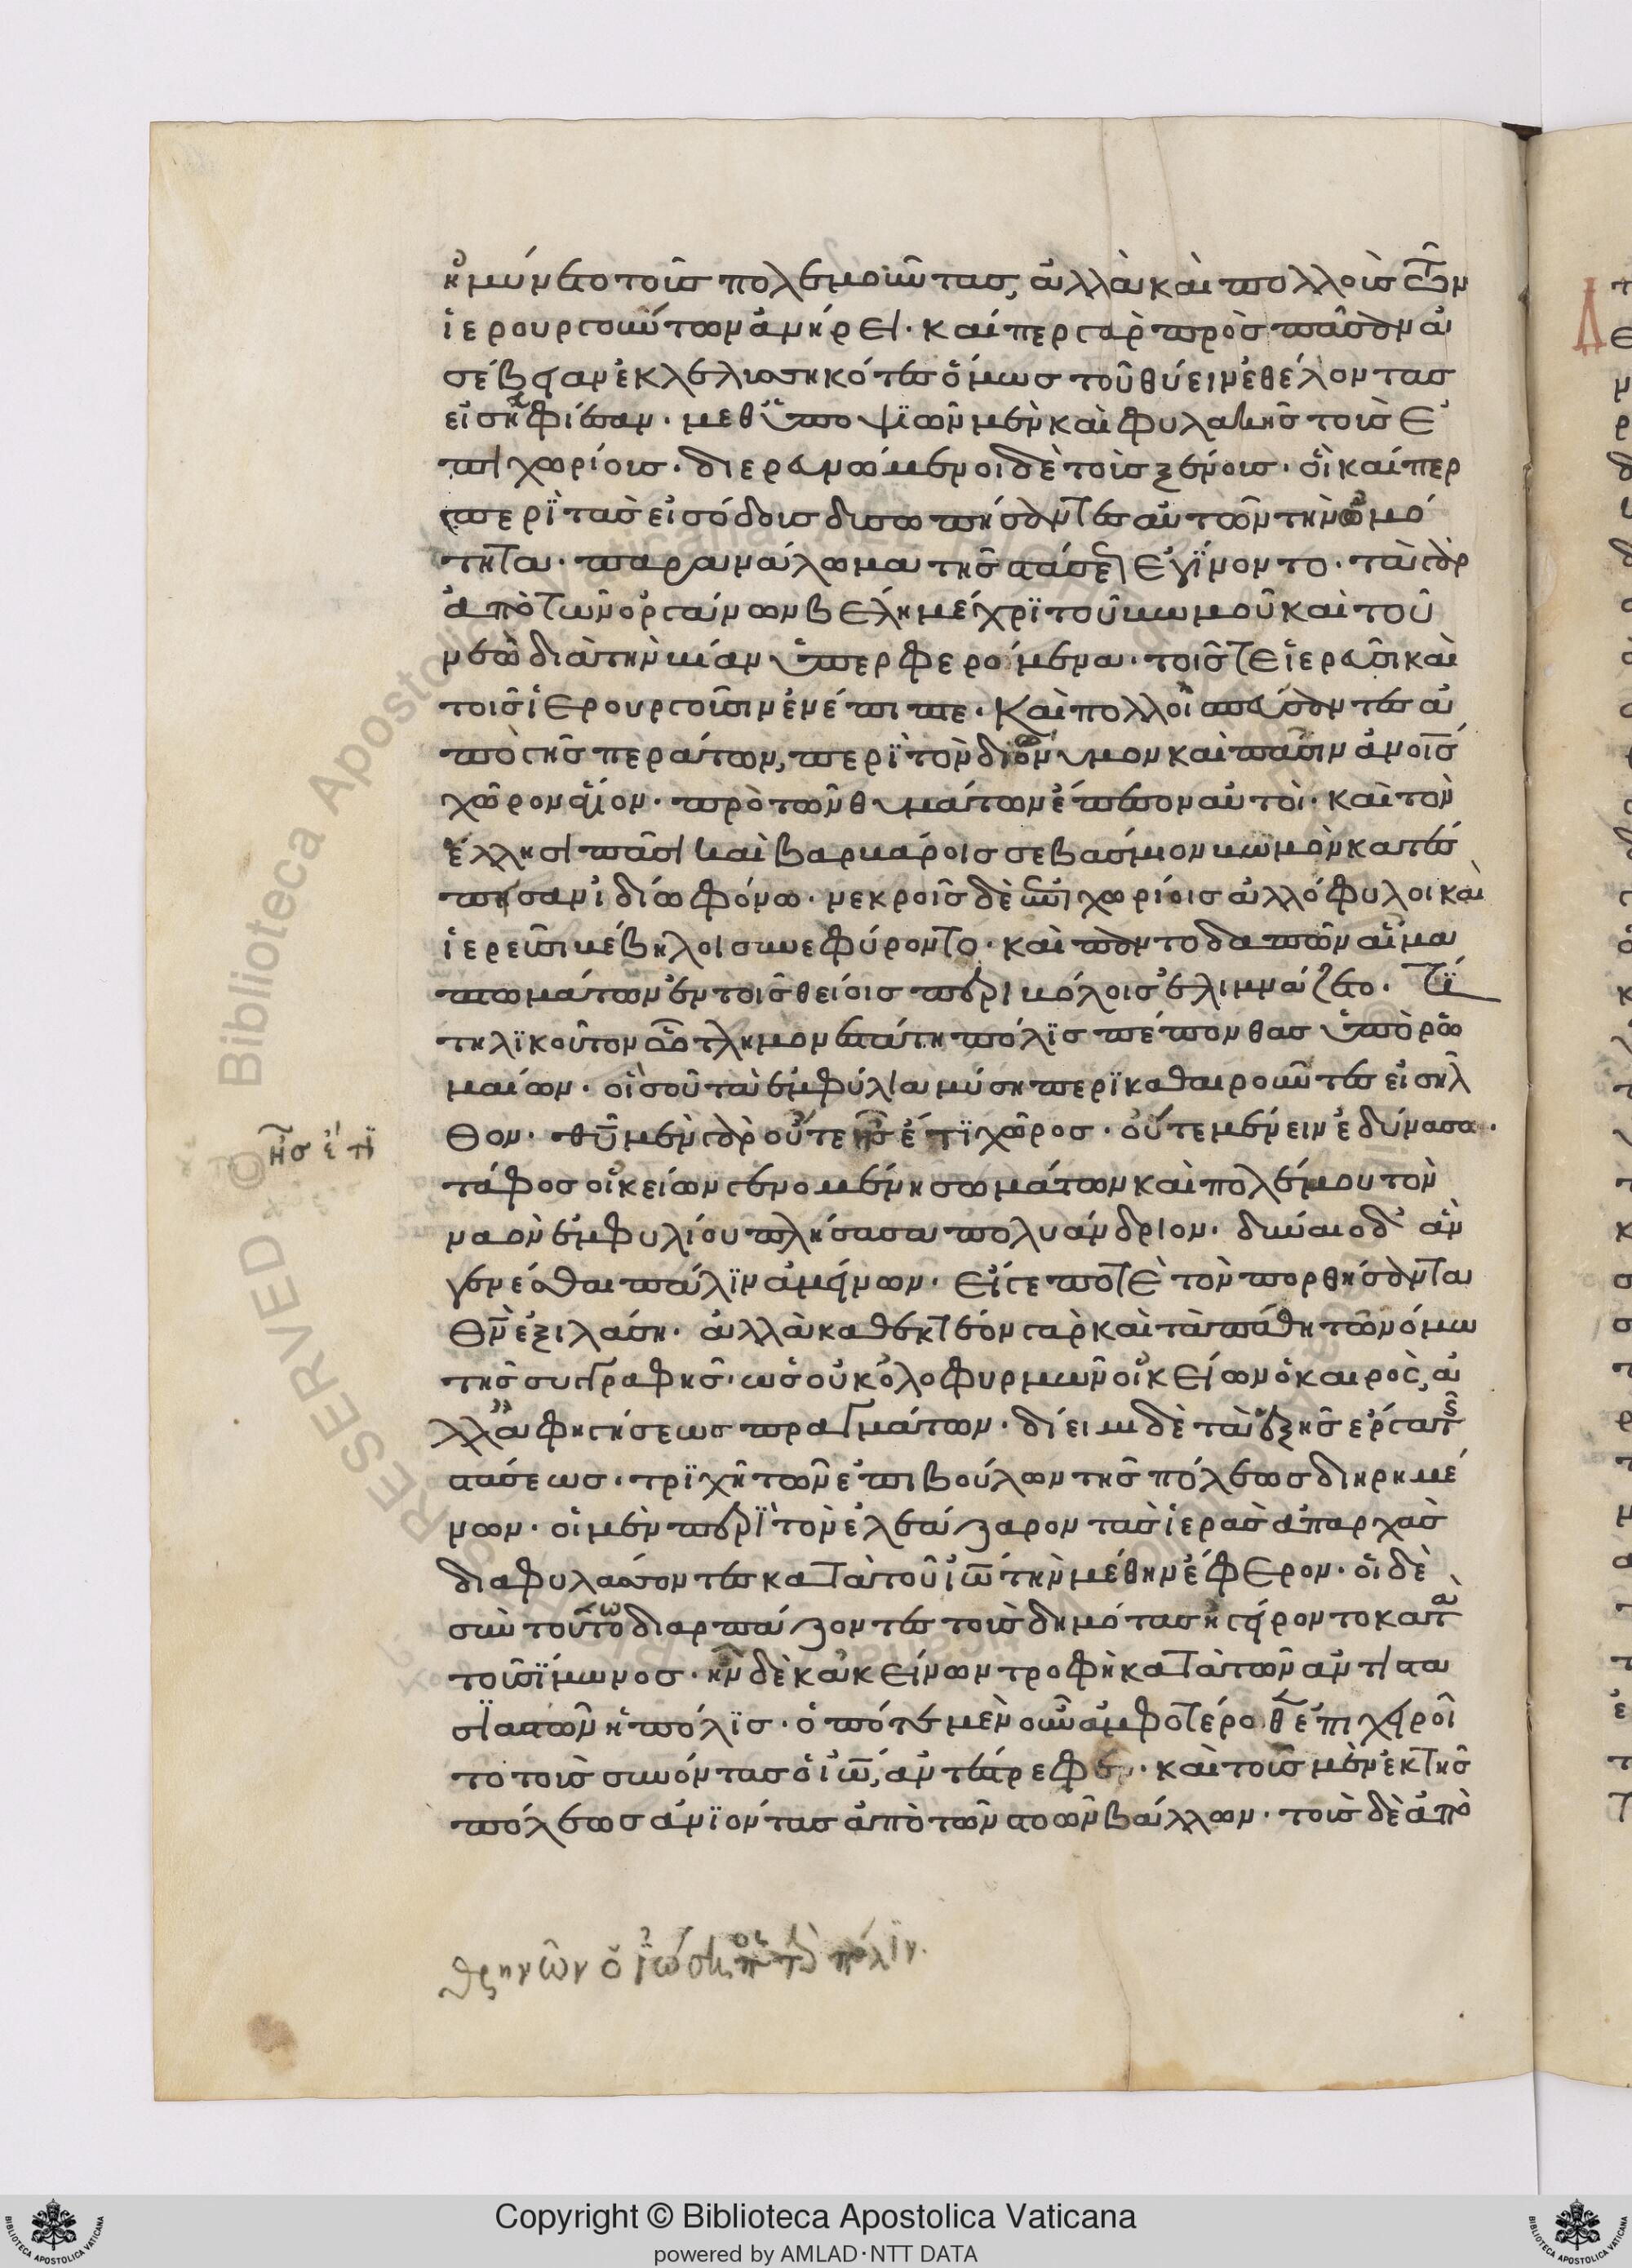 ἠμύνετο τοὺς πολεμοῦντας, ἀλλὰ καὶ πολλοὺς τῶν
ἱερουργούντων ἀνήρει· καίπερ γὰρ πρὸς πᾶσαν ἀ
σέβειαν ἐκλελυσσηκότες ὅμως τοὺς θύειν ἐθέλοντας
εἰσηφίεσαν· μεθ' ὑποψϊῶν μὲν καὶ φυλακῆς τοὺς ἐ
πιχωρίους· διερευνώμενοι δὲ τοὺς ξένους· οἳ καίπερ
περὶ τὰς εἰσόδους δυσωπήσαντες αὐτῶν τὴν ὠμό
τητα· παρανάλωμα τῆς στάσεως ἐγίνοντο· τὰ γὰρ
ἀπὸ τῶν ὀργάνων βέλη μέχρϊ τοῦ βωμοῦ καὶ τοῦ
νεὼ διὰ τὴν βίαν ὑπερφερόμενα· τοῖς τε ἱερεῦσι καὶ
τοῖς ἱερουργοῦσιν ἐνέπιπτε· καὶ πολλοὶ σπεύσαντες ἀ
πὸ γῆς περάτων, περὶ τὸν διώνυμον καὶ πᾶσιν ἀνοῖς
χῶρον ἅγιον· πρὸ τῶν θυμάτων ἔπεσον αὐτοὶ· καὶ τὸν
ἕλλησι πᾶσι καὶ βαρβάροις σεβάσμιον βωμὸν κατέ
σπεισαν ἰδίω φόνω· νεκροῖς δὲ ἐπιχωρίοις ἀλλόφυλοι καὶ
ἱερεῦσι βέβηλοι συνεφύροντο· καὶ παντοδαπῶν αἷμα
πτωμάτων ἐν τοῖς θείοις περιβόλοις ἐλιμνάζετο· τί
τηλϊκοῦτον ὦ τλημονεστάτη πόλϊς πέπονθας ὑπὸ ῥω
μαίων· οἵ σου τὰ ἐμφύλια μύση περϊκαθαιροῦντες εἰσῆλ
θον· θῦ μὲν γὰρ οὔτε ἦς ἔτϊ χῶρος· οὔτε μένειν ἐδύνασο·
τάφος οἰκείων γενομένη σωμάτων καὶ πολέμου τὸν
ναὸν ἐμφυλίου πλήσασα πολυάνδριον· δύναιο δ' ἂν
γενέσθαι πάλϊν ἀμείνων· εἴγε ποτὲ τὸν πορθήσαντα
θν ἐξιλάση· ἀλλὰ καθεκτέον γὰρ καὶ τὰ πάθη τῶ νόμω
τῆς συγγραφῆς· ὡς οὐκ ὀλοφυρμῶν οἰκείων ὁ καιρὸς, ἀ
λλ' ἀφηγήσεως πραγμάτων· δίειμι δὲ τὰ ἑξῆς ἔργα τῆς
στάσεως· τρϊχῆ τῶν ἐπιβούλων τῆς πόλεως διηρημέ
νων· οἱ μὲν περὶ τὸν ἐλεάζαρον τὰς ἱερὰς ἀπαρχὰς
διαφυλάσσοντες κατὰ τοῦ ἰω τὴν μέθην ἔφερον· οἱ δὲ
σὺν τούτω διαρπάζοντες τοὺς δημότας ἠγείροντο κατὰ
τοῦ σϊμωνος· ἦν δὲ κἀκείνων τροφὴ κατὰ τῶν ἀντιστα
σϊαστῶν ἡ πόλϊς· ὁπότε μὲν οὖν ἀμφοτέροθεν ἐπιχειροῖ
το τοὺς συνόντας ὁ ἰω, ἀντέστρεφεν· καὶ τοὺς μὲν ἐκ τῆς
πόλεως ἀνϊόντας ἀπὸ τῶν στοῶν βάλλων· τοὺς δὲ ἀπὸ
ἦς ἔτϊ
θρηνῶν ὁ ἰώσηπος τὴν πόλϊν.
Copyright © Biblioteca Apostolica Vaticana
powered by AMLAD·NTT DATA